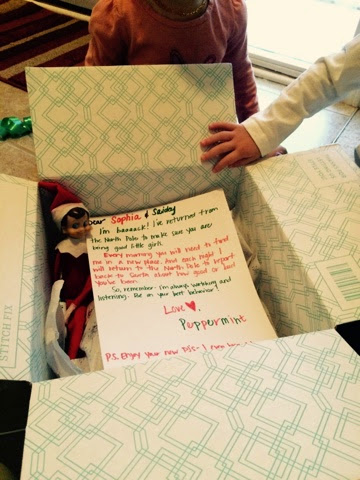 Dear Sophia & Sailey
I'm baaaack! I've returned from
the North Pole to make sure you are
being good little girls.
Every morning you will need to find
me in a new place. And each night I
will return to the North Pole to report
back to Santa about how good or bad
you've been.
So, remember- I'm always watching and
listening. Be on your best behavior!
Love
Peppermint
P.S. Enjoy your new PJs- I even
STITCH FIX